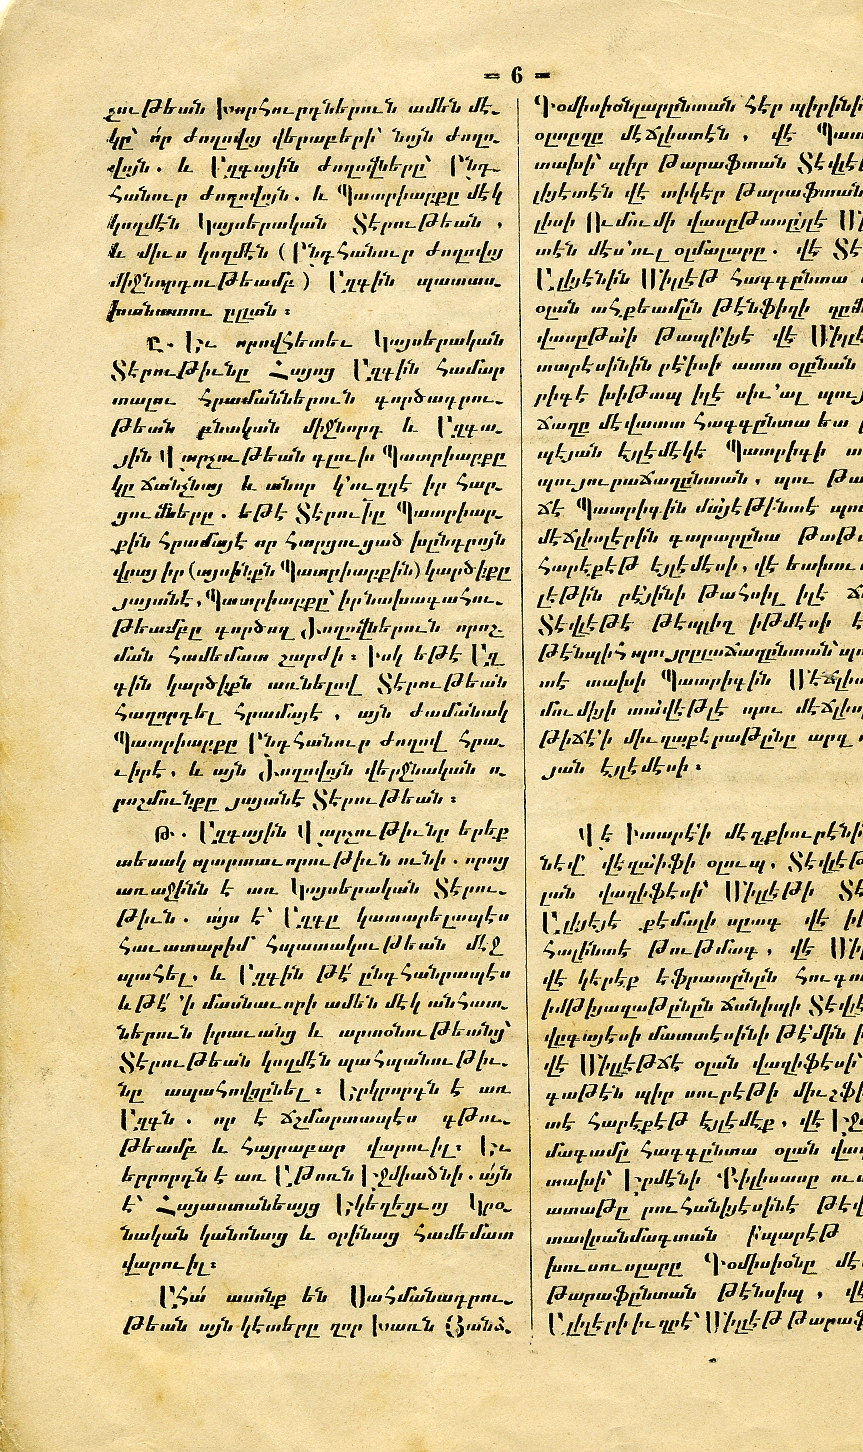 = 6 =
չութեան Խորհուրդներուն ամեն մէ-
կը՝ ո՛ր ժողովոյ վերաբերի՝ նոյն ժողո-
վոյն. և Ազգային Ժողովները՝ Ընդ-
հանուր ժողովոյն. և Պատրիարքը մէկ
կողմէն Կայսերական Տէրութեան,
և միւս կողմէն (Ընդհանուր ժողովոյ
միջնորդութեամբ) Ազգին պատաս-
խանատու ըլլան:
Ը. Եւ որովհետեւ Կայսերական
Տէրութիւնը Հայոց Ազգին համար
տալու հրամաններուն գործադրու-
թեան բնական միջնորդ և Ազգա-
յին Վարչութեան գլուխ Պատրիարքը
կը ճանչնայ և անոր կ՚ուղղէ իր հար-
ցումները. եթէ Տէրուիը Պատրիար-
քին հրամայէ որ հարցուցած խընդրոյն
վրայ իր (այսինքն Պատրիարքին) կարծիքը
յայտնէ, Պատրիարքը՝ իր նախագահու-
թեամբը գործող Ժողովներուն որոշ-
ման համեմատ շարժի: Իսկ եթէ Ազ
գին կարծիքն առնելով Տէրութեան
հաղորդել հրամայէ, այն ժամանակ
Պատրիարքը Ընդհանուր ժողով հրա-
ւիրէ, և այն Ժողովոյն վերջնական ո-
րոշմունքը յայտնէ Տէրութեան:
Թ. Ազգային Վարչութիւնը երեք
տեսակ պարտաւորութիւն ունի. որոց
առաջինն է առ Կայսերական Տէրու-
թիւն. այս է՝ Ազգը կատարելապէս
հաւատարիմ հպատակութեան մէջ
պահել, և Ազգին թէ՛ ընդհանրապէս
և թէ՛ ՚ի մասնաւորի ամեն մէկ անհատ-
ներուն իրաւանց և արտօնութեանց՝
Տէրութեան կողմէն պահպանութիւ-
նը ապահովցընել: Երկրորդն է առ
Ազգն. որ է ճշմարտապէս գթու-
թեամբ և հայրաբար վարուիլ: Եւ
երրորդն է առ Աթոռն Էջմիածնի. այն
է՝ Հայաստանեայց Եկեղեցւոյ Կրօ-
նական կանոնաց և օրինաց համեմատ
վարուիլ:
Ահա՛ ասոնք են Սահմանադրու-
թեան այն կէտերը զոր Խառն Յանձ-
Գօմիսիօնլարընտան հէր պիրինի
օլտըղը մէճլիստէն, վէ Պատ
տախի՝ պիր թարաֆտան Տէվլէ
լիյէտէն վէ տիկեր թարաֆտան
լիսի Ումումի վասըթասըյլէ Մի
տէն մէս՚ուլ օլմալարը. վէ Տէ
Ալիյէնին Միլլէթ հագգընտա
օլան ահքեամըն թէնֆիզի
վասըթա՛ի թապի՛իյէ վէ Միլլէ
տարէսինին րէ՛իսի ատտ օլընան
րիգէ խիթապ իլէ սիւ՚ալ պույ
ճաղը մէվատտ հագգընտա եա
պէյան էյլէմէկե Պատրիգի
պույուրաճաղընտան, պու թա
ճէ Պատրիգին մա՛իյէթինտէ պու
մէճլիսլէրին գարարընա թաթ
հարէքէթ էյլէմէսի, վէ եախու
լէթին րէյինի թահսիլ իլէ
Տէվլէթէ թէպլիղ իթմէսի
թէնպիհ պույըրըլաճաղընտան՝ պու
տէ տախի Պատրիգին Մէճլիս
մումիյի տա՛վէթլէ պու մէճլիս
թիճէ՛ի միւզաքէրաթընը արզ
յան էյլէմէսի:
Վէ Իտարէ՛ի մէզքիւրէնին
նէվ՛ վէզա՛իֆի օլուպ, Տէվլէթ
լան վազիֆէսի՝ Միլլէթի Տէ
Ալիյէյէ քեմալի սըտգ վէ
հալինտէ թութմագ, վէ Միլ
վէ կերէք եֆրատընըն հուգու
իմթիյազաթընըն ճանիպի Տէվլէ
վըգայէսի մատտէսինի թէ՛մին
վէ Միլլէթճէ օլան վազիֆէսի՝
գաթէն պիր սուրէթի միւշֆի
տէ հարէքէթ էյլէմէք, վէ Էջ
մագամը հագգընտա օլան վազ
տախի՝ Էրմէնի Քիլիսասը
ատաթը րուհանիյէսինէ թէվ
տավրանմագտան իպարէթ
խուսուսլարը Գօմիսիօնը մէ
թարաֆընտան թէնսիպ, վէ
Ալիլէրի իւզրէ՝ Միլլէթ թարաֆ